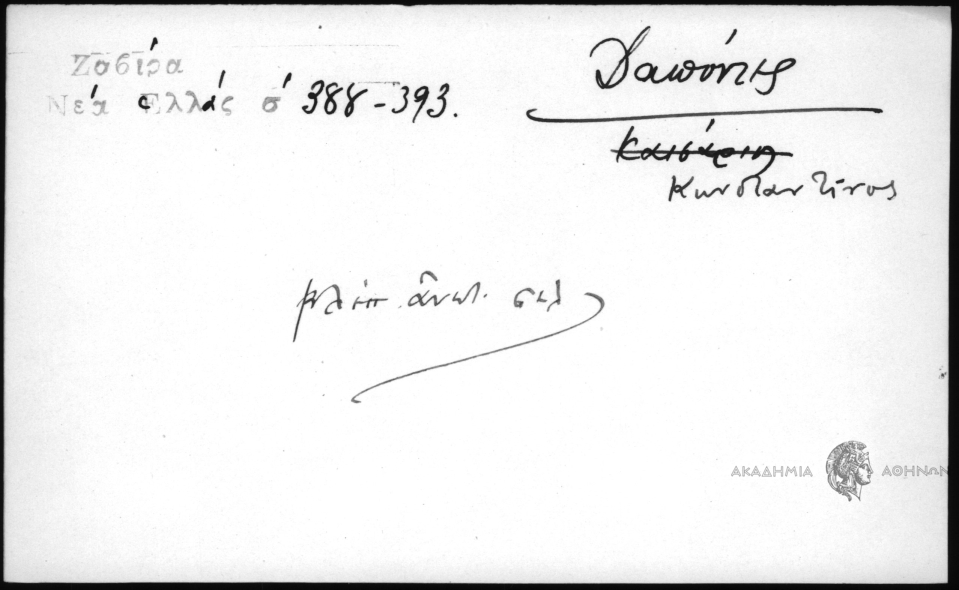 Ζαβίρα
Νέα Ἑλλάς σ 388-393.
Δαπόντες
Καισάριος
Κωνσταντῖνος
βλέπ. ἄνωτ. σελ
ΑΚΑΔΗΜΙΑ ΑΘΗΝΩΝ